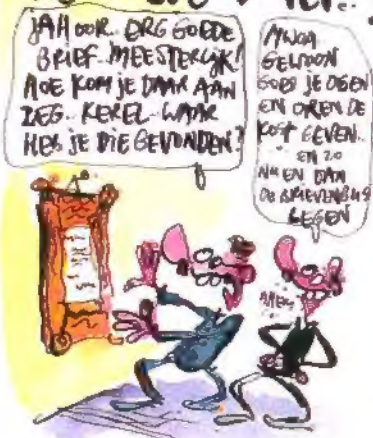 JAHOOR.. ERG GOEDE
BRIEF. MEESTERLIJK!
HOE KOM JE DAAR AAN
ZEG.. KEREL.. WAAR
HEB JE DIE GEVONDEN?
MWOA
GEWOON
GOED JE OGEN
EN OREN DE
KOST GEVEN..
EN ZO
NU EN DAN
DE BRIEVENBUS
LEGEN